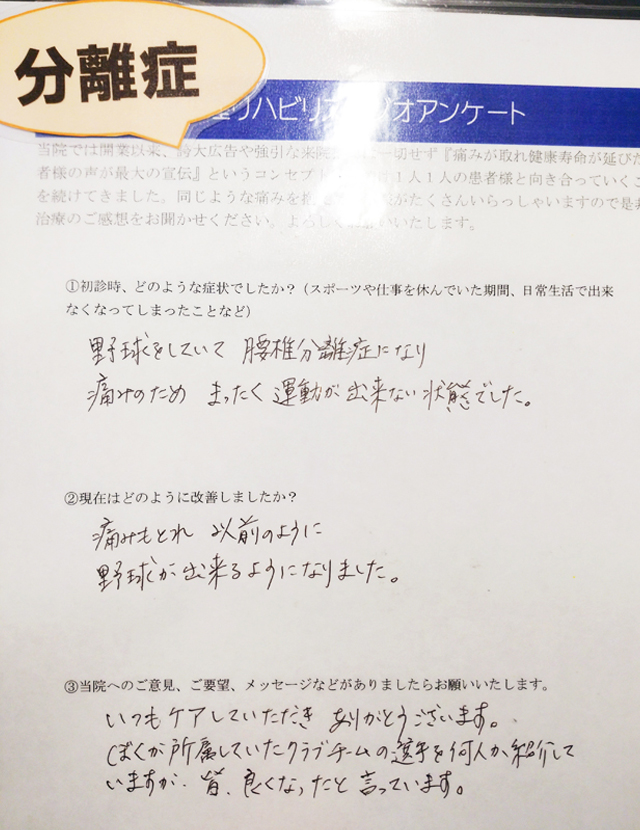 分離症
リハビリスタジオアンケート
当院では開業以来、誇大広告や強引な来院 一切せず『痛みが取れ健康寿命が延びた
者様の声が最大の宣伝』というコンセプト 1人1人の患者様と向き合っていくこ
を続けてきました。同じような痛みを抱 がたくさんいらっしゃいますので是非
治療のご感想をお聞かせください。よろしくお願いいたします。
①初診時、どのような症状でしたか？（スポーツや仕事を休んでいた期間、日常生活で出来
なくなってしまったことなど）
野球をしていて 腰椎分離症になり
痛みのため まったく運動が出来ない状態でした。
②現在はどのように改善しましたか？
痛みもとれ 以前のように
野球が出来るようになりました。
③当院へのご意見、ご要望、メッセージなどがありましたらお願いいたします。
いつもケアしていただき ありがとうございます。
ぼくが所属していたクラブチームの選手を何人か紹介して
いますが、皆、良くなったと言っています。